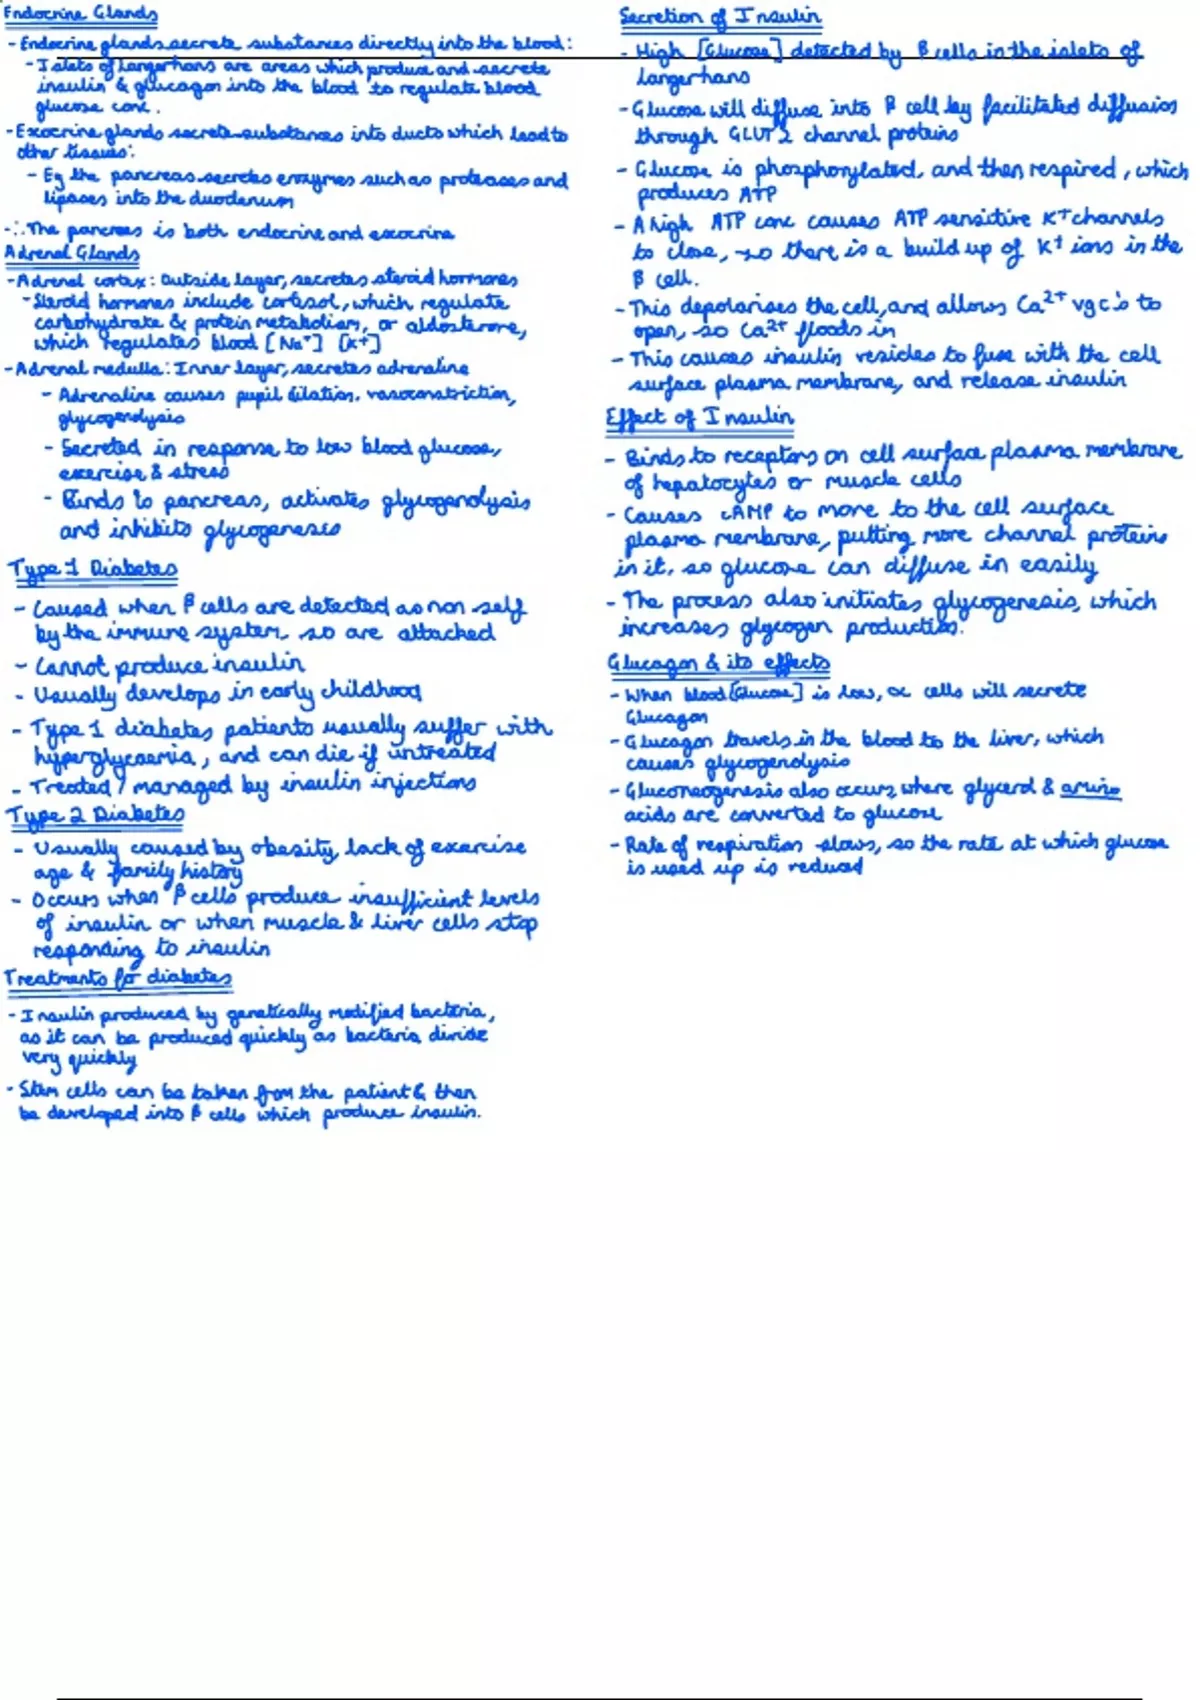 Endocrine Glands
- Endocrine glands secrete substances directly into the blood:
- Islets of Langerhans are areas which produce and secrete
insulin & glucagon into the blood to regulate blood
glucose conc.
- Exocrine glands secrete substances into ducts which lead to
other tissues:
- Eg the pancreas secretes enzymes such as proteases and
lipases into the duodenum
- ∴ The pancreas is both endocrine and exocrine
Adrenal Glands
- Adrenal cortex: Outside layer, secretes steroid hormones
- Steroid hormones include cortisol, which regulate
carbohydrate & protein metabolism, or aldosterone,
which regulates blood [Na⁺] [K⁺]
- Adrenal medulla: Inner layer, secretes adrenaline
- Adrenaline causes pupil dilation, vasoconstriction,
glycogenolysis
- Secreted in response to low blood glucose,
exercise & stress
- Binds to pancreas, activates glycogenolysis
and inhibits glycogenesis
Type 1 Diabetes
- Caused when β cells are detected as non self
by the immune system, so are attacked
- Cannot produce insulin
- Usually develops in early childhood
- Type 1 diabetes patients usually suffer with
hyperglycaemia, and can die if untreated
- Treated / managed by insulin injections
Type 2 Diabetes
- Usually caused by obesity, lack of exercise
age & family history
- Occurs when β cells produce insufficient levels
of insulin or when muscle & liver cells stop
responding to insulin
Treatments for diabetes
- Insulin produced by genetically modified bacteria,
as it can be produced quickly as bacteria divide
very quickly
- Stem cells can be taken from the patient & then
be developed into β cells which produce insulin.
Secretion of Insulin
- High [Glucose] detected by β cells in the islets of
Langerhans
- Glucose will diffuse into β cell by facilitated diffusion
through GLUT 2 channel proteins
- Glucose is phosphorylated, and then respired, which
produces ATP
- A high ATP conc causes ATP sensitive K⁺ channels
to close, so there is a build up of K⁺ ions in the
β cell.
- This depolarises the cell, and allows Ca²⁺ vgc's to
open, so Ca²⁺ floods in
- This causes insulin vesicles to fuse with the cell
surface plasma membrane, and release insulin
Effect of Insulin
- Binds to receptors on cell surface plasma membrane
of hepatocytes or muscle cells
- Causes cAMP to move to the cell surface
plasma membrane, putting more channel proteins
in it, so glucose can diffuse in easily
- The process also initiates glycogenesis, which
increases glycogen production.
Glucagon & its effects
- When blood [Glucose] is low, α cells will secrete
Glucagon
- Glucagon travels in the blood to the liver, which
causes glycogenolysis
- Gluconeogenesis also occurs, where glycerol & amino
acids are converted to glucose
- Rate of respiration slows, so the rate at which glucose
is used up is reduced